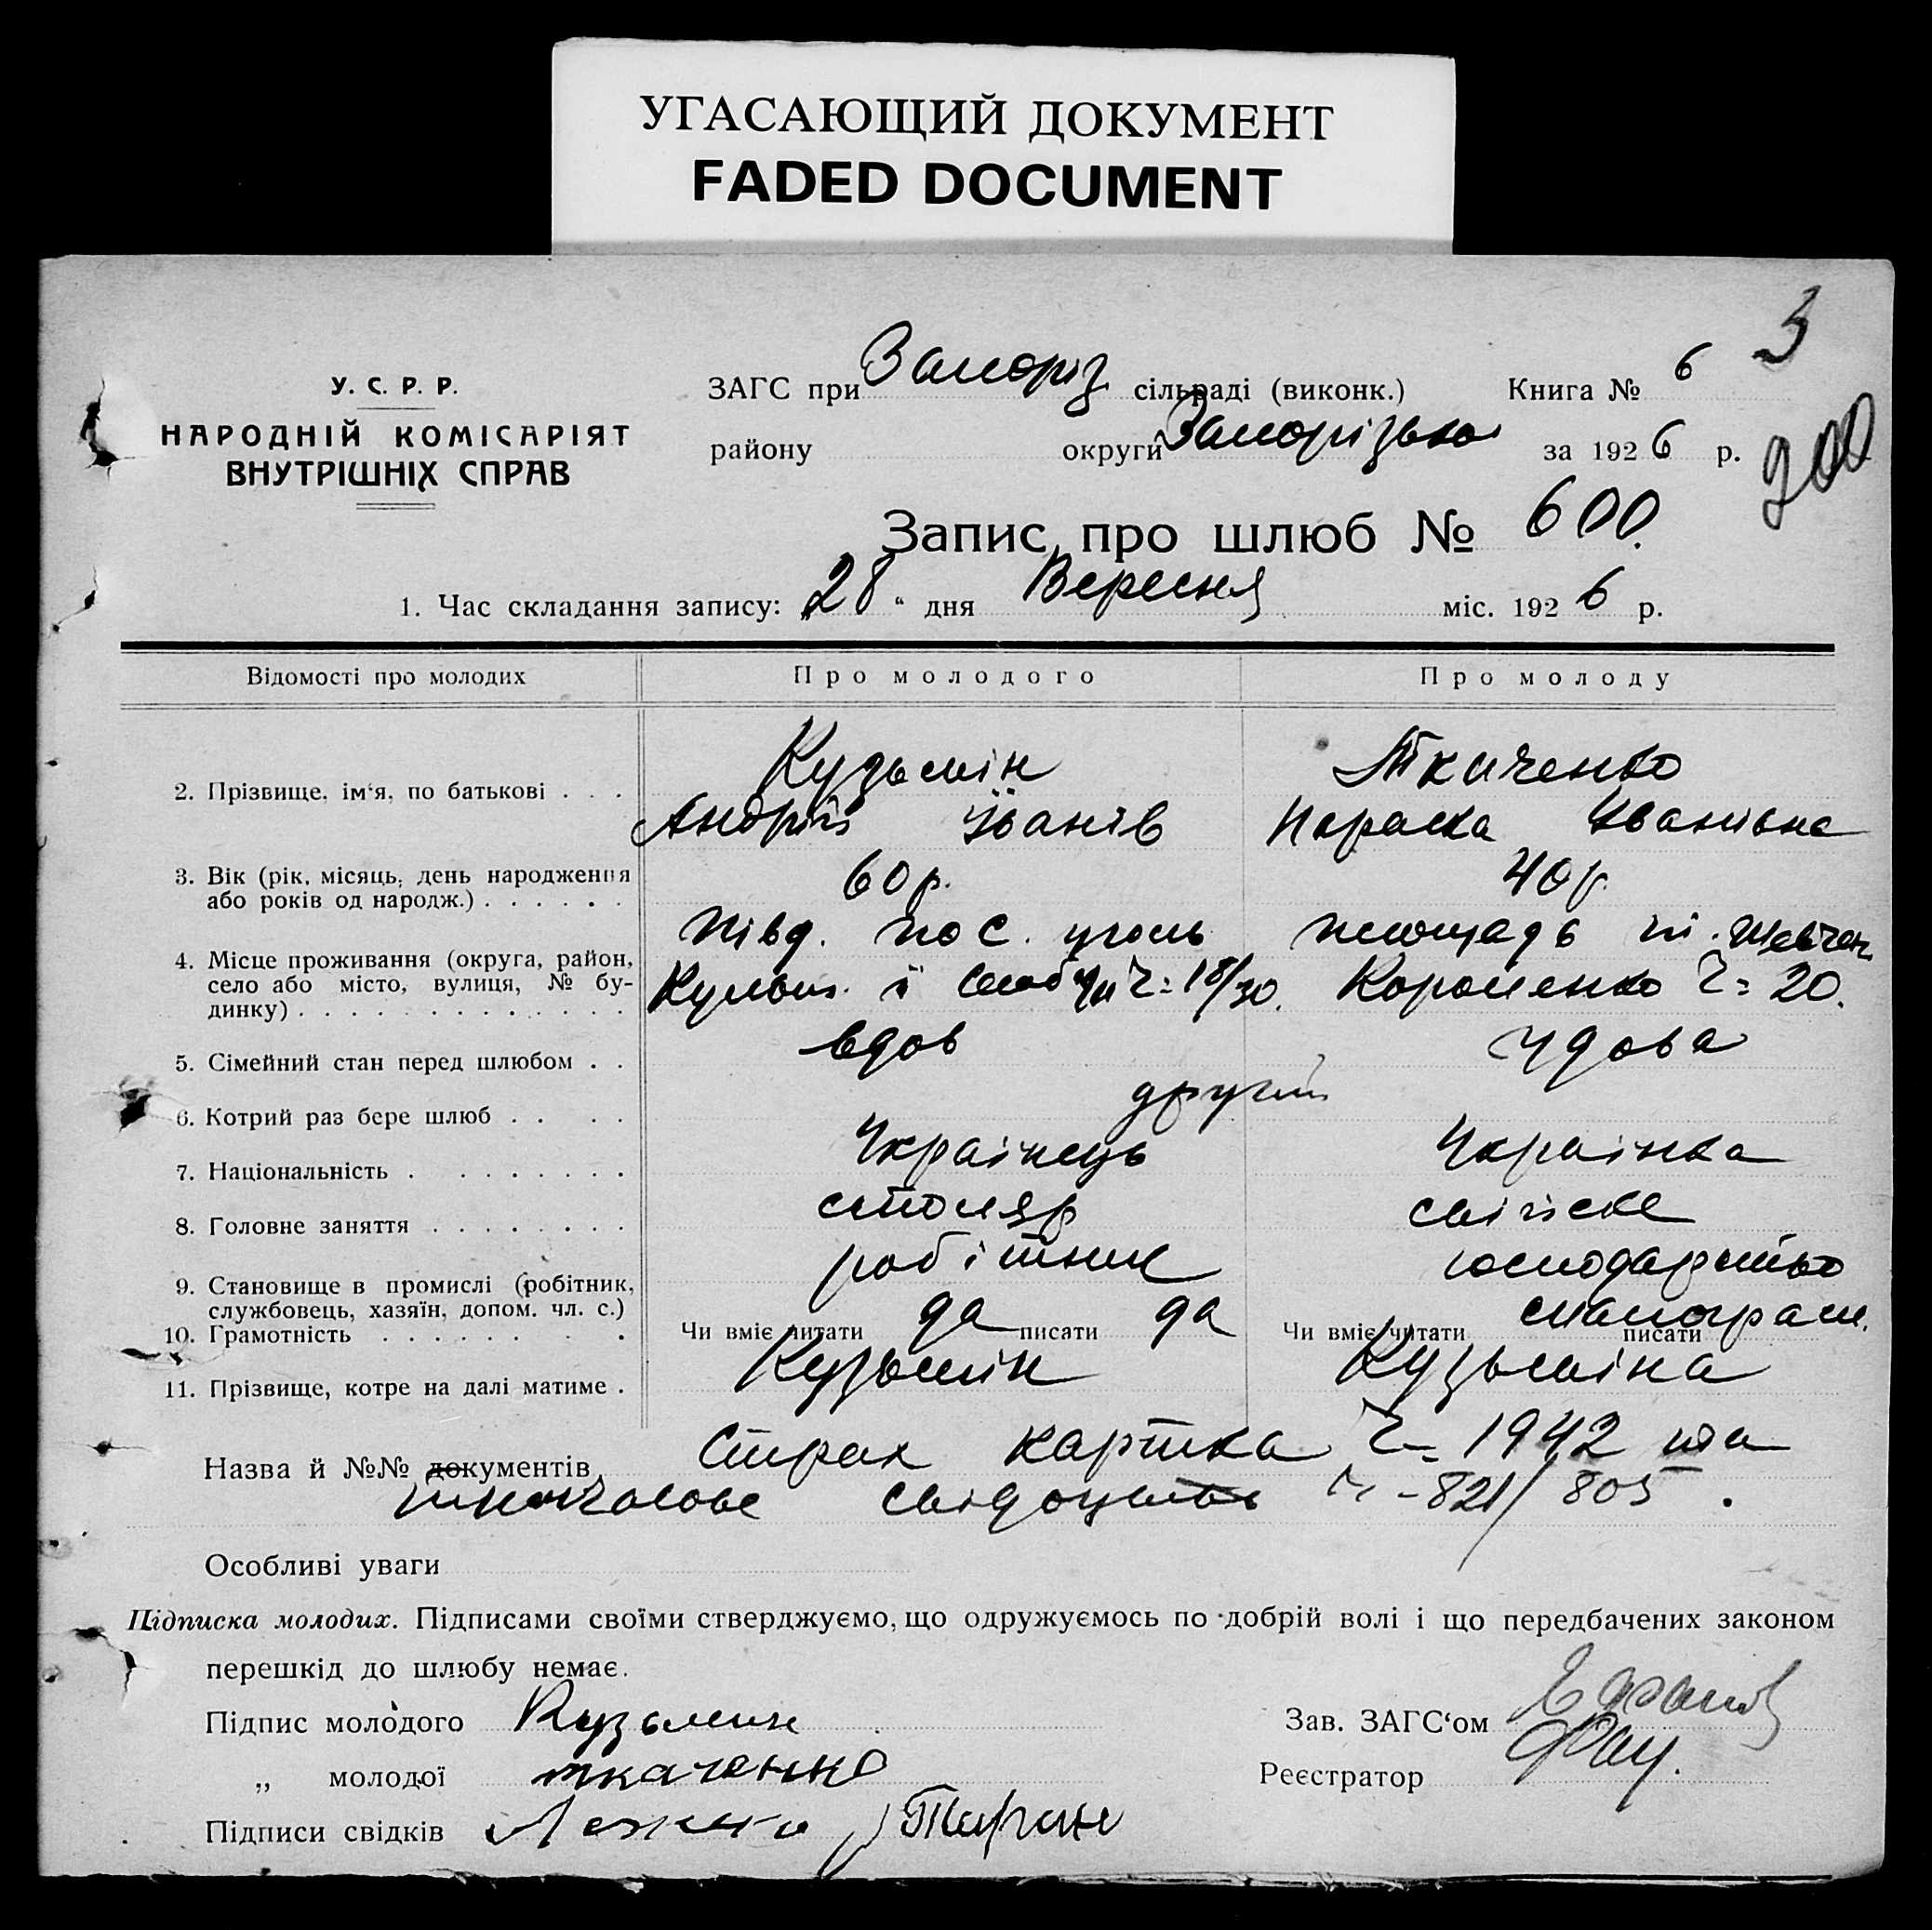 УГАСАЮЩИЙ ДОКУМЕНТ
FADED DOCUMENT
3
200
У. С. Р. Р.
НАРОДНІЙ КОМІСАРІЯТ
ВНУТРІШНІХ СПРАВ
ЗАГС при Запоріз сільраді (виконк.) Книга № 6
району округи Запорізько за 1926 р.
Запис про шлюб № 600.
1. Час складання запису: „28“ дня Вересня міс. 1926 р.
Відомості про молодих Про молодого Про молоду
2. Прізвище, ім‘я, по батькові . . . Кузьмін Ткаченко
Андрій Іванів Параска Іванівна
3. Вік (рік, місяць, день народження 60 р. 40 р.
або років од народж.) . . . . . .
4. Місце проживання (округа, район, Півд. пос. уголь площадь ім. Шевчен.
село або місто, вулиця, № бу- Ч= 18/30. Короленко Ч= 20.
динку) . . . . . . . . . . . . .
5. Сімейний стан перед шлюбом . . вдов удова
6. Котрий раз бере шлюб . . . . другий
7. Національність . . . . . . . . Українець Українка
8. Головне заняття . . . . . . . . столяр
9. Становище в промислі (робітник, робітник господарство
службовець, хазяїн, допом. чл. с.)
10. Грамотність . . . . . . . . Чи вміє читати да писати да Чи вміє читати писати малограм.
11. Прізвище, котре на далі матиме . Кузьмін Кузьміна
Назва й №№ документів Страх картка Ч= 1942 та
свідоцтво Ч-821/805.
Особливі уваги
Підписка молодих. Підписами своїми стверджуємо, що одружуємось по добрій волі і що передбачених законом
перешкід до шлюбу немає.
Підпис молодого Кузьмин Зав. ЗАГС‘ом
„ молодої ткаченко Реєстратор
Підписи свідків Таран